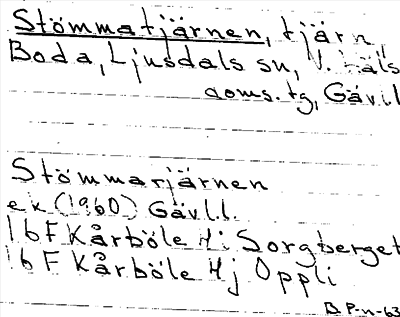 Stömmatjärnen, tjärn,
Boda, Ljusdals sn, V. Häls
doms. tg, Gävl
Stömmarjärnen
ek (1960) Gävl.l.
16F Kårböle Hi Sorgberget
16F Kårböle Hj Oppli
B P-n-63